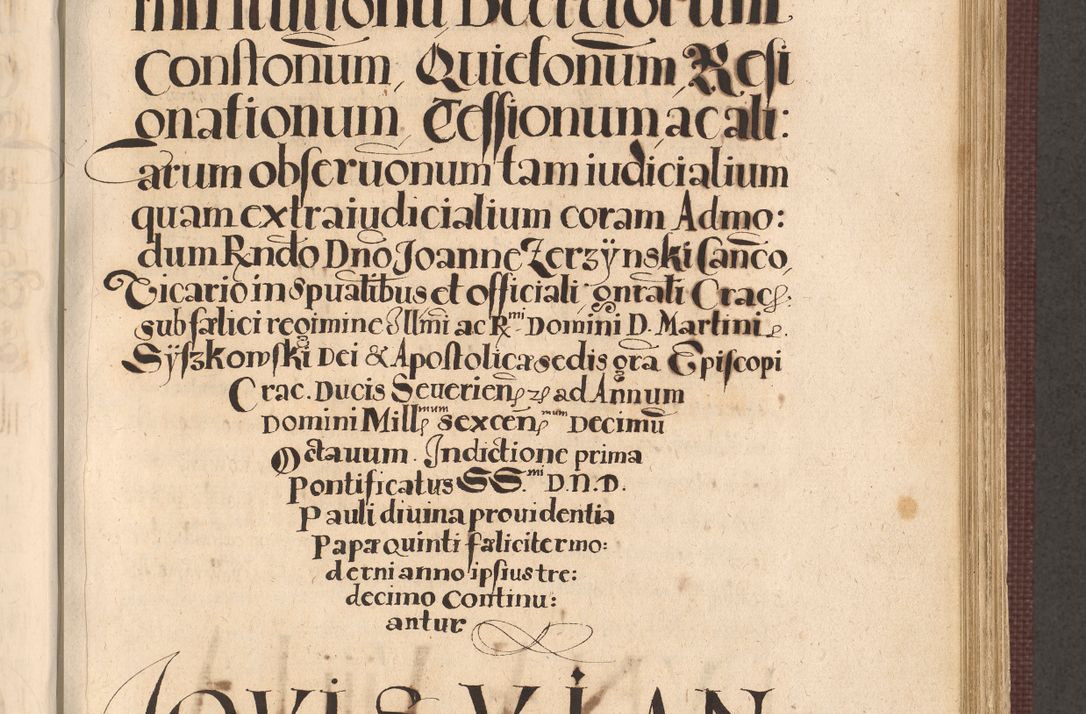 Decretorum
Constonũm, Quietonũm Resi
onationum, Cessionum ac ali:
arum obseruonum tam iudicialium
quam extraiudicialium coram Admo:
dum Rndo Dno Joanne Zerzÿnski Canco,
Vicario in spualibus et officiali gnrali Crac.
sub fælici regimine Illmi ac R.mi Domini D. Martini
Syszkowski Dei & Apostolicæ sedis gra Episcopi
Crac. Ducis Seuerien ad Annum
Domini Mill.mum sexcen.mum Decimũ
Octauum. Indictione prima
Pontificatus SS.mi D.N.D.
Pauli diuina prouidentia
Papæ quinti fæliciter mo:
derni anno ipsius tre:
decimo Continu:
antur
JOVIS VI AN